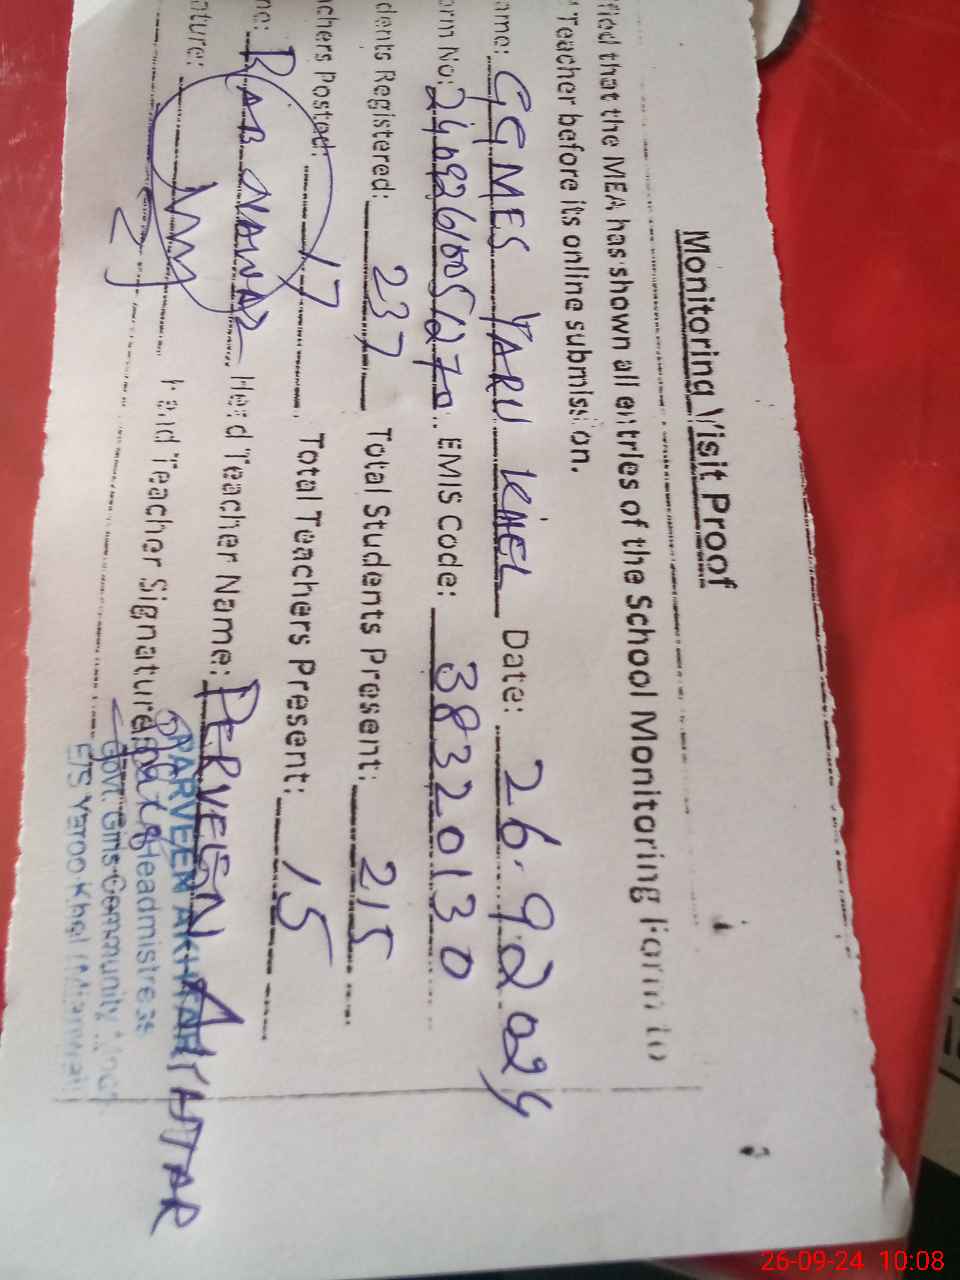 Monitoring Visit Proof
that the MEA has shown all entries of the School Monitoring Form to
Teacher before its online submission.
ame: GGMES YARU KHEL Date: 26.9.2024
orm No: EMIS Code: 38320130
dents Registered: 237 Total Students Present: 215
chers Posted: 17 Total Teachers Present: 15
me: RAB NAWAZ Head Teacher Name: PERVEEN AKHTAR
ature: Head Teacher Signature
PARVEEN AKHTAR
Headmistress
Govt. Girls Community
E/S Yaroo Khel (Mianwali)
26-09-24 10:08